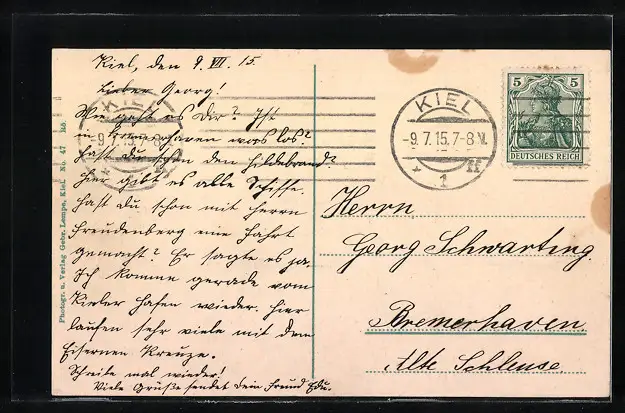 Kiel, den 9. VII. 15.
Lieber Georg!
Wie geht es Dir? Ist
in Bremerhaven was los?
Hast Du schon den Hildebrand?
Hier gibt es alle Schiffe.
Hast du schon mit Herrn
Freudenberg eine Fahrt
gemacht? Er sagte es ja.
Ich komme gerade vom
Kieler Hafen wieder. Hier
laufen sehr viele mit dem
Eisernen Kreuze.
Schreibe mal wieder!
Viele Grüße sendet Dein Freund Edu.
Photogr. u. Verlag Gebr. Lempe, Kiel. No. 47
KIEL
-9.7.15.7-8 V.
* 1 H
KIEL
-9.7.15.7-8
5 5
DEUTSCHES REICH
Herrn
Georg Schwarting.
Bremerhaven.
Alte Schleuse.